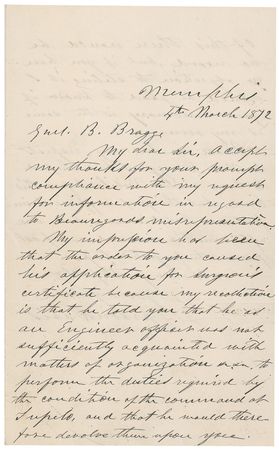 Memphis
4th March 1872
Genl. B. Bragg
My dear Sir, accept
my thanks for your prompt
compliance with my request
for information in regard
to Beauregards misrepresentation.
My impression has been
that the order to you caused
his application for surgeon's
certificate because my recollection
is that he told you that he as
an Engineer officer was not
sufficiently acquainted with
matters of organization &c. to
perform the duties required by
the condition of the command at
Tupelo, and that he would there
fore devolve them upon you.